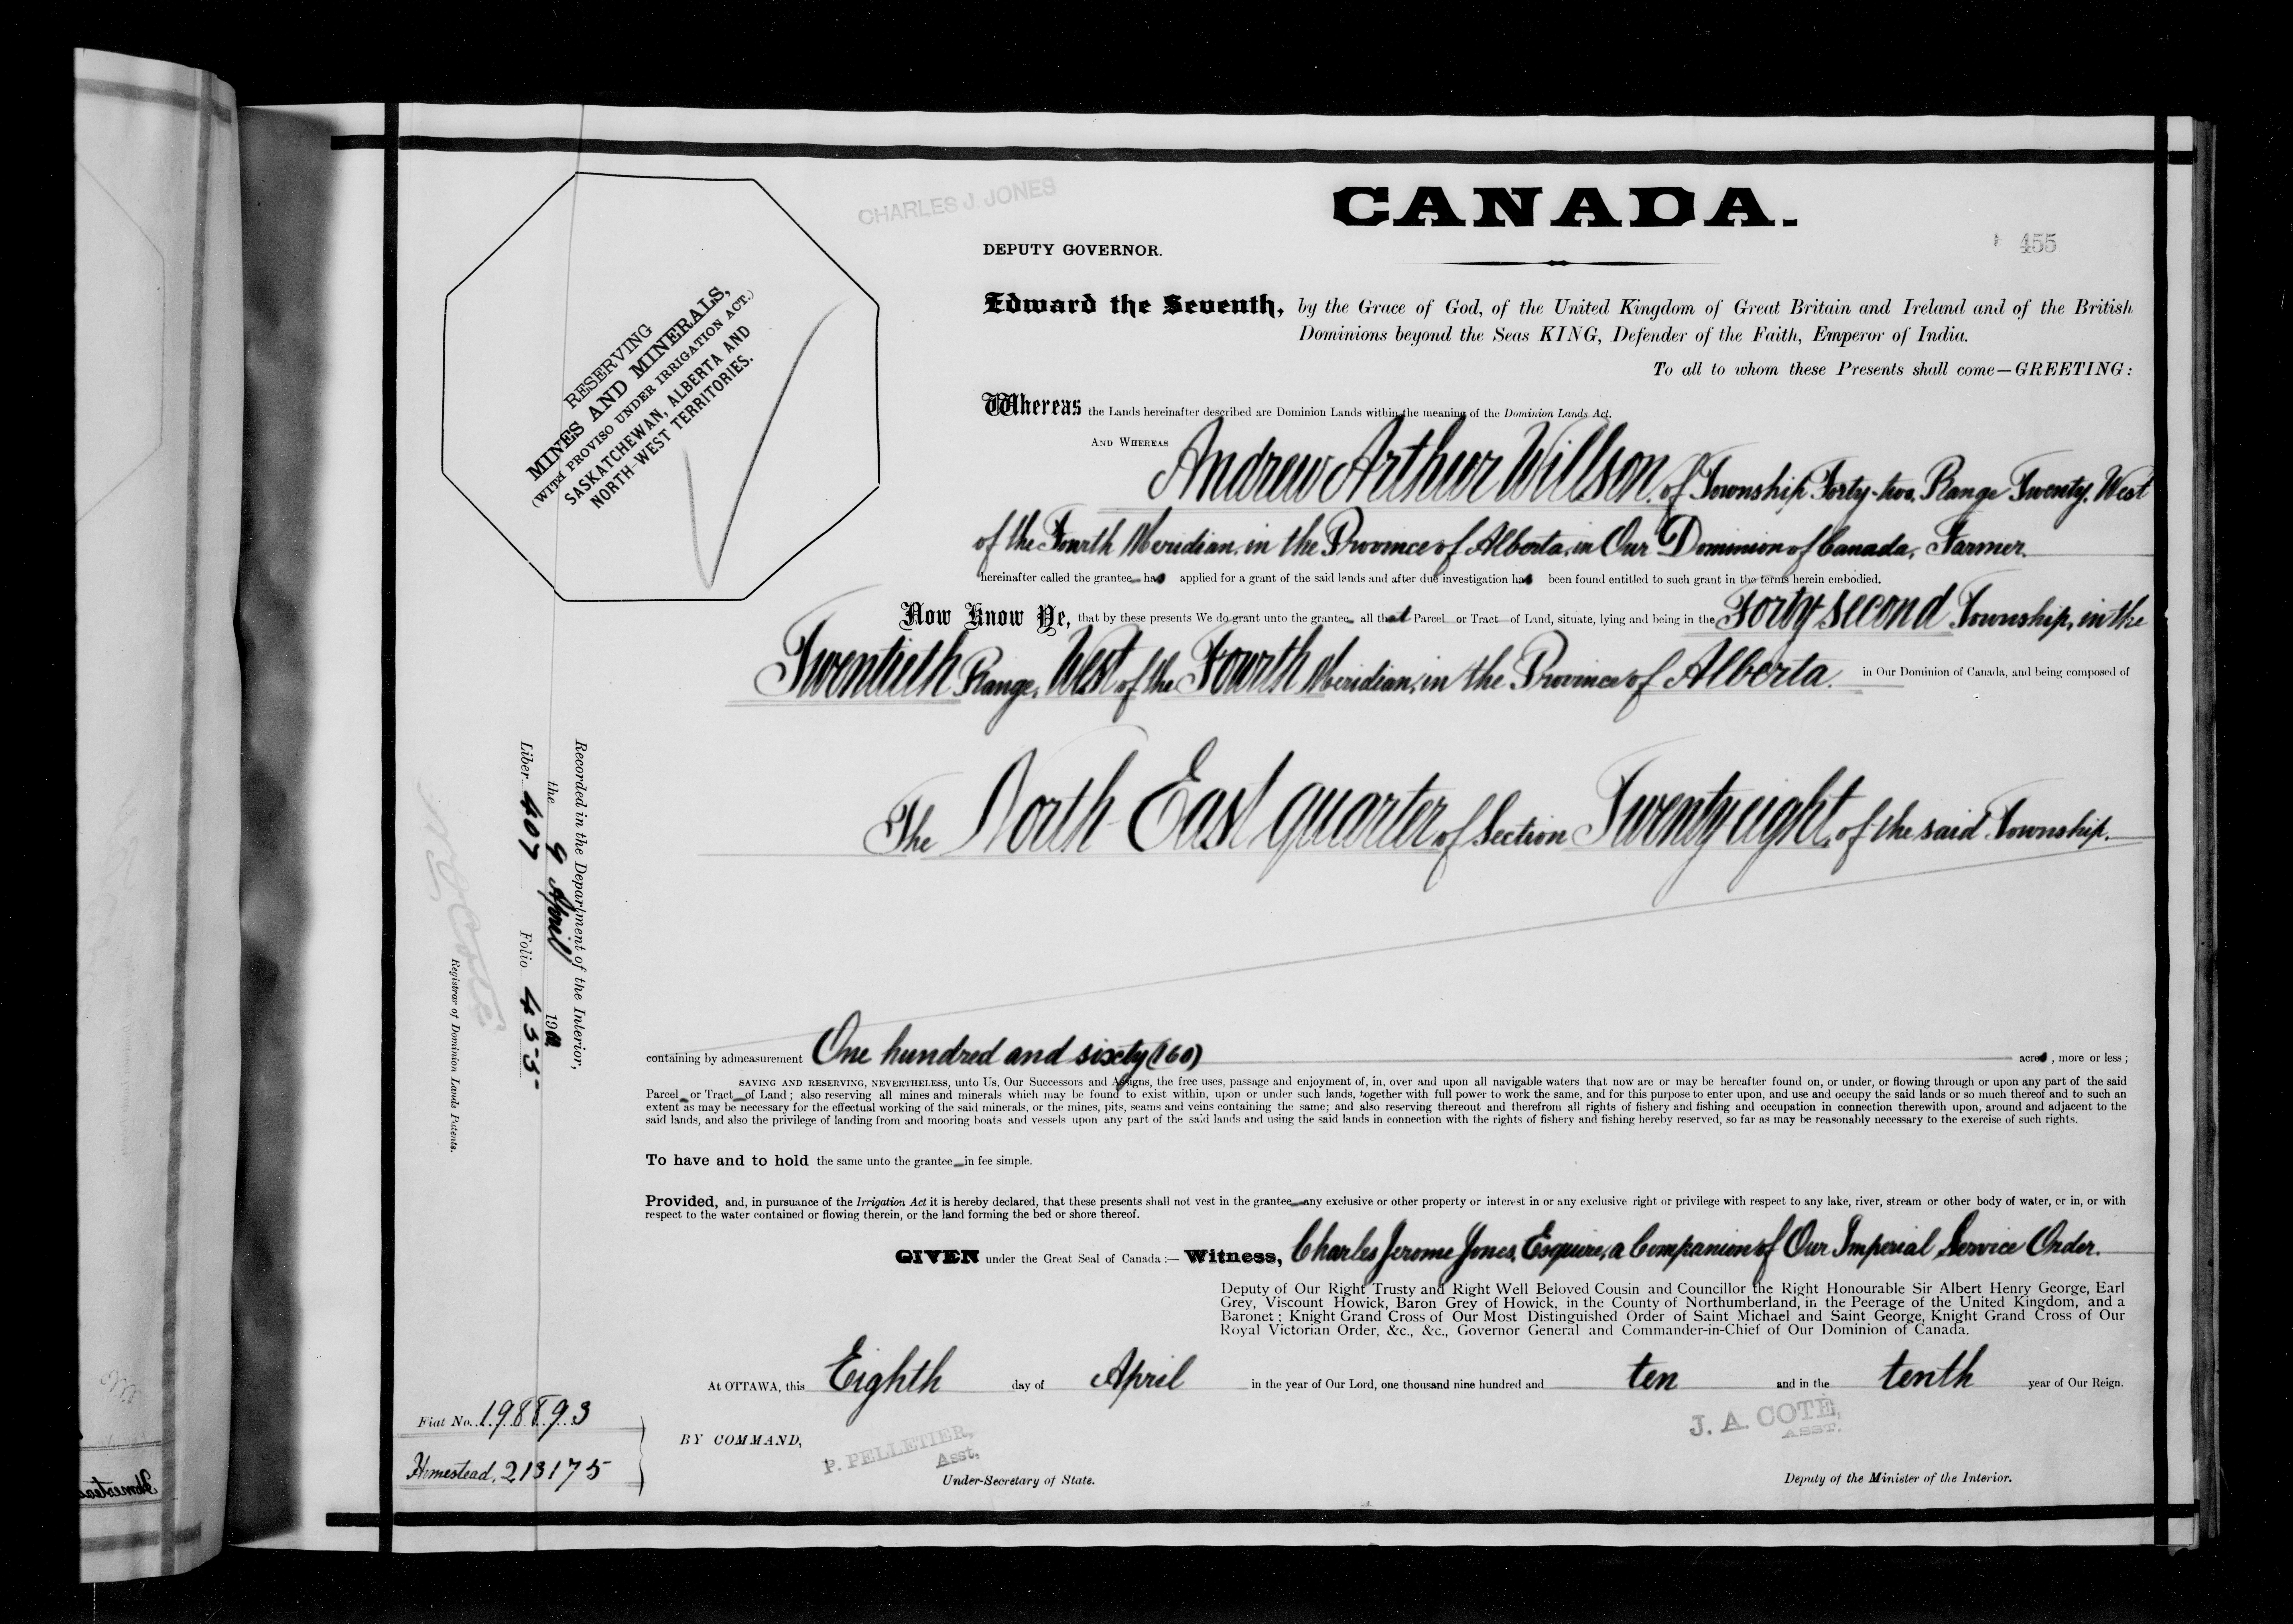 CHARLES J. JONES
CANADA.
DEPUTY GOVERNOR.
455
RESERVING
MINES AND MINERALS,
(WITH PROVISO UNDER IRRIGATION ACT.)
SASKATCHEWAN, ALBERTA AND
NORTH-WEST TERRITORIES.
Edward the Seventh, by the Grace of God, of the United Kingdom of Great Britain and Ireland and of the British
Dominions beyond the Seas KING, Defender of the Faith, Emperor of India.
To all to whom these Presents shall come—GREETING:
Whereas the Lands hereinafter described are Dominion Lands within the meaning of the Dominion Lands Act.
AND WHEREAS Andrew Arthur Willson, of Township Forty-two, Range Twenty, West
of the Fourth Meridian, in the Province of Alberta, in Our Dominion of Canada, Farmer.
hereinafter called the grantee has applied for a grant of the said lands and after due investigation has been found entitled to such grant in the terms herein embodied.
Now Know Ye, that by these presents We do grant unto the grantee all that Parcel or Tract of Land, situate, lying and being in the Forty second Township, in the
Twentieth Range, West of the Fourth Meridian, in the Province of Alberta. in Our Dominion of Canada, and being composed of
The North East quarter of Section Twenty eight, of the said Township.
containing by admeasurement One hundred and sixty (160) acres, more or less;
SAVING AND RESERVING, NEVERTHELESS, unto Us, Our Successors and Assigns, the free uses, passage and enjoyment of, in, over and upon all navigable waters that now are or may be hereafter found on, or under, or flowing through or upon any part of the said
Parcel or Tract of Land; also reserving all mines and minerals which may be found to exist within, upon or under such lands, together with full power to work the same, and for this purpose to enter upon, and use and occupy the said lands or so much thereof and to such an
extent as may be necessary for the effectual working of the said minerals, or the mines, pits, seams and veins containing the same; and also reserving thereout and therefrom all rights of fishery and fishing and occupation in connection therewith upon, around and adjacent to the
said lands, and also the privilege of landing from and mooring boats and vessels upon any part of the said lands and using the said lands in connection with the rights of fishery and fishing hereby reserved, so far as may be reasonably necessary to the exercise of such rights.
To have and to hold the same unto the grantee in fee simple.
Provided, and, in pursuance of the Irrigation Act it is hereby declared, that these presents shall not vest in the grantee any exclusive or other property or interest in or any exclusive right or privilege with respect to any lake, river, stream or other body of water, or in, or with
respect to the water contained or flowing therein, or the land forming the bed or shore thereof.
GIVEN under the Great Seal of Canada:— Witness, Charles Jerome Jones, Esquire, a Companion of Our Imperial Service Order.
Deputy of Our Right Trusty and Right Well Beloved Cousin and Councillor the Right Honourable Sir Albert Henry George, Earl
Grey, Viscount Howick, Baron Grey of Howick, in the County of Northumberland, in the Peerage of the United Kingdom, and a
Baronet; Knight Grand Cross of Our Most Distinguished Order of Saint Michael and Saint George, Knight Grand Cross of Our
Royal Victorian Order, &c., &c., Governor General and Commander-in-Chief of Our Dominion of Canada.
At OTTAWA, this Eighth day of April in the year of Our Lord, one thousand nine hundred and ten and in the tenth year of Our Reign.
BY COMMAND,
P. PELLETIER,
Asst.
Under-Secretary of State.
J. A. COTE,
ASST.
Deputy of the Minister of the Interior.
Recorded in the Department of the Interior,
the 9 April 19
Liber 407 Folio 455
Registrar of Dominion Lands Patents.
Fiat No. 198893
Homestead, 213175
Homestead